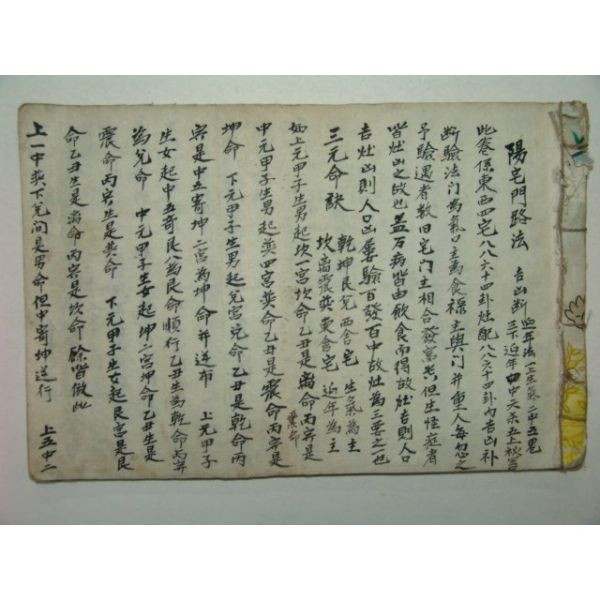 陽宅門路法 吉凶断
此卷係東西四宅八八六十四卦灶配八八六十四卦內吉凶补
断驗法門為氣口主為食祿主與門并重人每忽之
予驗遇者数旧宅門主相合發富者但生怪症者
皆灶凶之故也盖万病皆由飲食而得故灶吉則人口
吉灶凶則人口凶屡驗百發百中故灶為三要之一也
三元命訣 乾坤艮兌西舍宅 生氣為主
坎离震巽東舍宅 近年為主
如上元甲子生男起坎一宮坎命乙丑生是离命丙寅是
中元甲子生男起巽四宮巽命乙丑是震命丙寅是
坤命 下元甲子生男起兌宮兌命乙丑是乾命丙
寅是中五寄坤二宮為坤命并逆布 上元甲子
生女起中五寄艮八為艮命順行乙丑生為乾命丙寅
為兌命 中元甲子生女起坤二宮坤命乙丑生是
震命丙寅生是巽命 下元甲子生女起艮宮是艮
命乙丑生是离命丙寅是坎命 餘皆倣此
上一中巽下兌间是男命但中寄坤逆行 上五中二